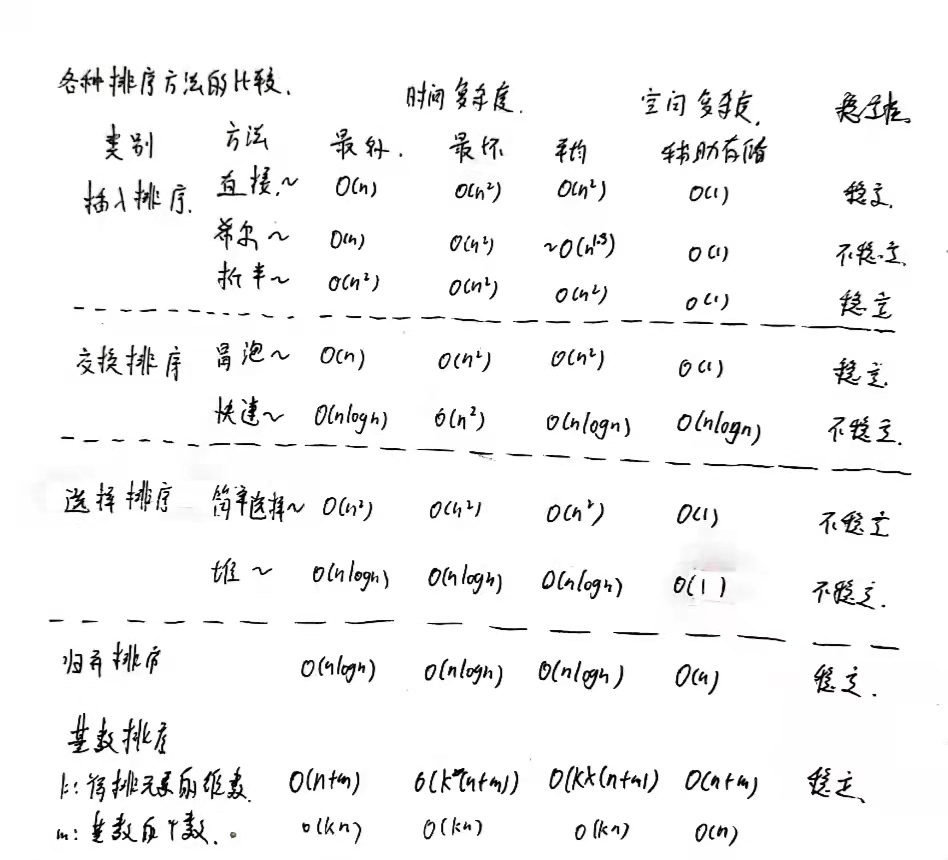 各种排序方法的比较.
时间复杂度. 空间复杂度. 稳定性
类别 方法 最好. 最坏 平均 辅助存储
插入排序. 直接~ O(n) O(n²) O(n²) O(1) 稳定.
希尔~ O(n) O(n²) ~O(n^1.3) O(1) 不稳定.
折半~ O(n²) O(n²) O(n²) O(1) 稳定
交换排序 冒泡~ O(n) O(n²) O(n²) O(1) 稳定.
快速~ O(nlogn) O(n²) O(nlogn) O(nlogn) 不稳定.
选择排序 简单选择~ O(n²) O(n²) O(n²) O(1) 不稳定
堆~ O(nlogn) O(nlogn) O(nlogn) O(1) 不稳定.
归并排序 O(nlogn) O(nlogn) O(nlogn) O(n) 稳定.
基数排序
k:待排元素的维数. O(n+m) O(k*(n+m)) O(k×(n+m)) O(n+m) 稳定.
m:基数的个数. O(kn) O(kn) O(kn) O(n)